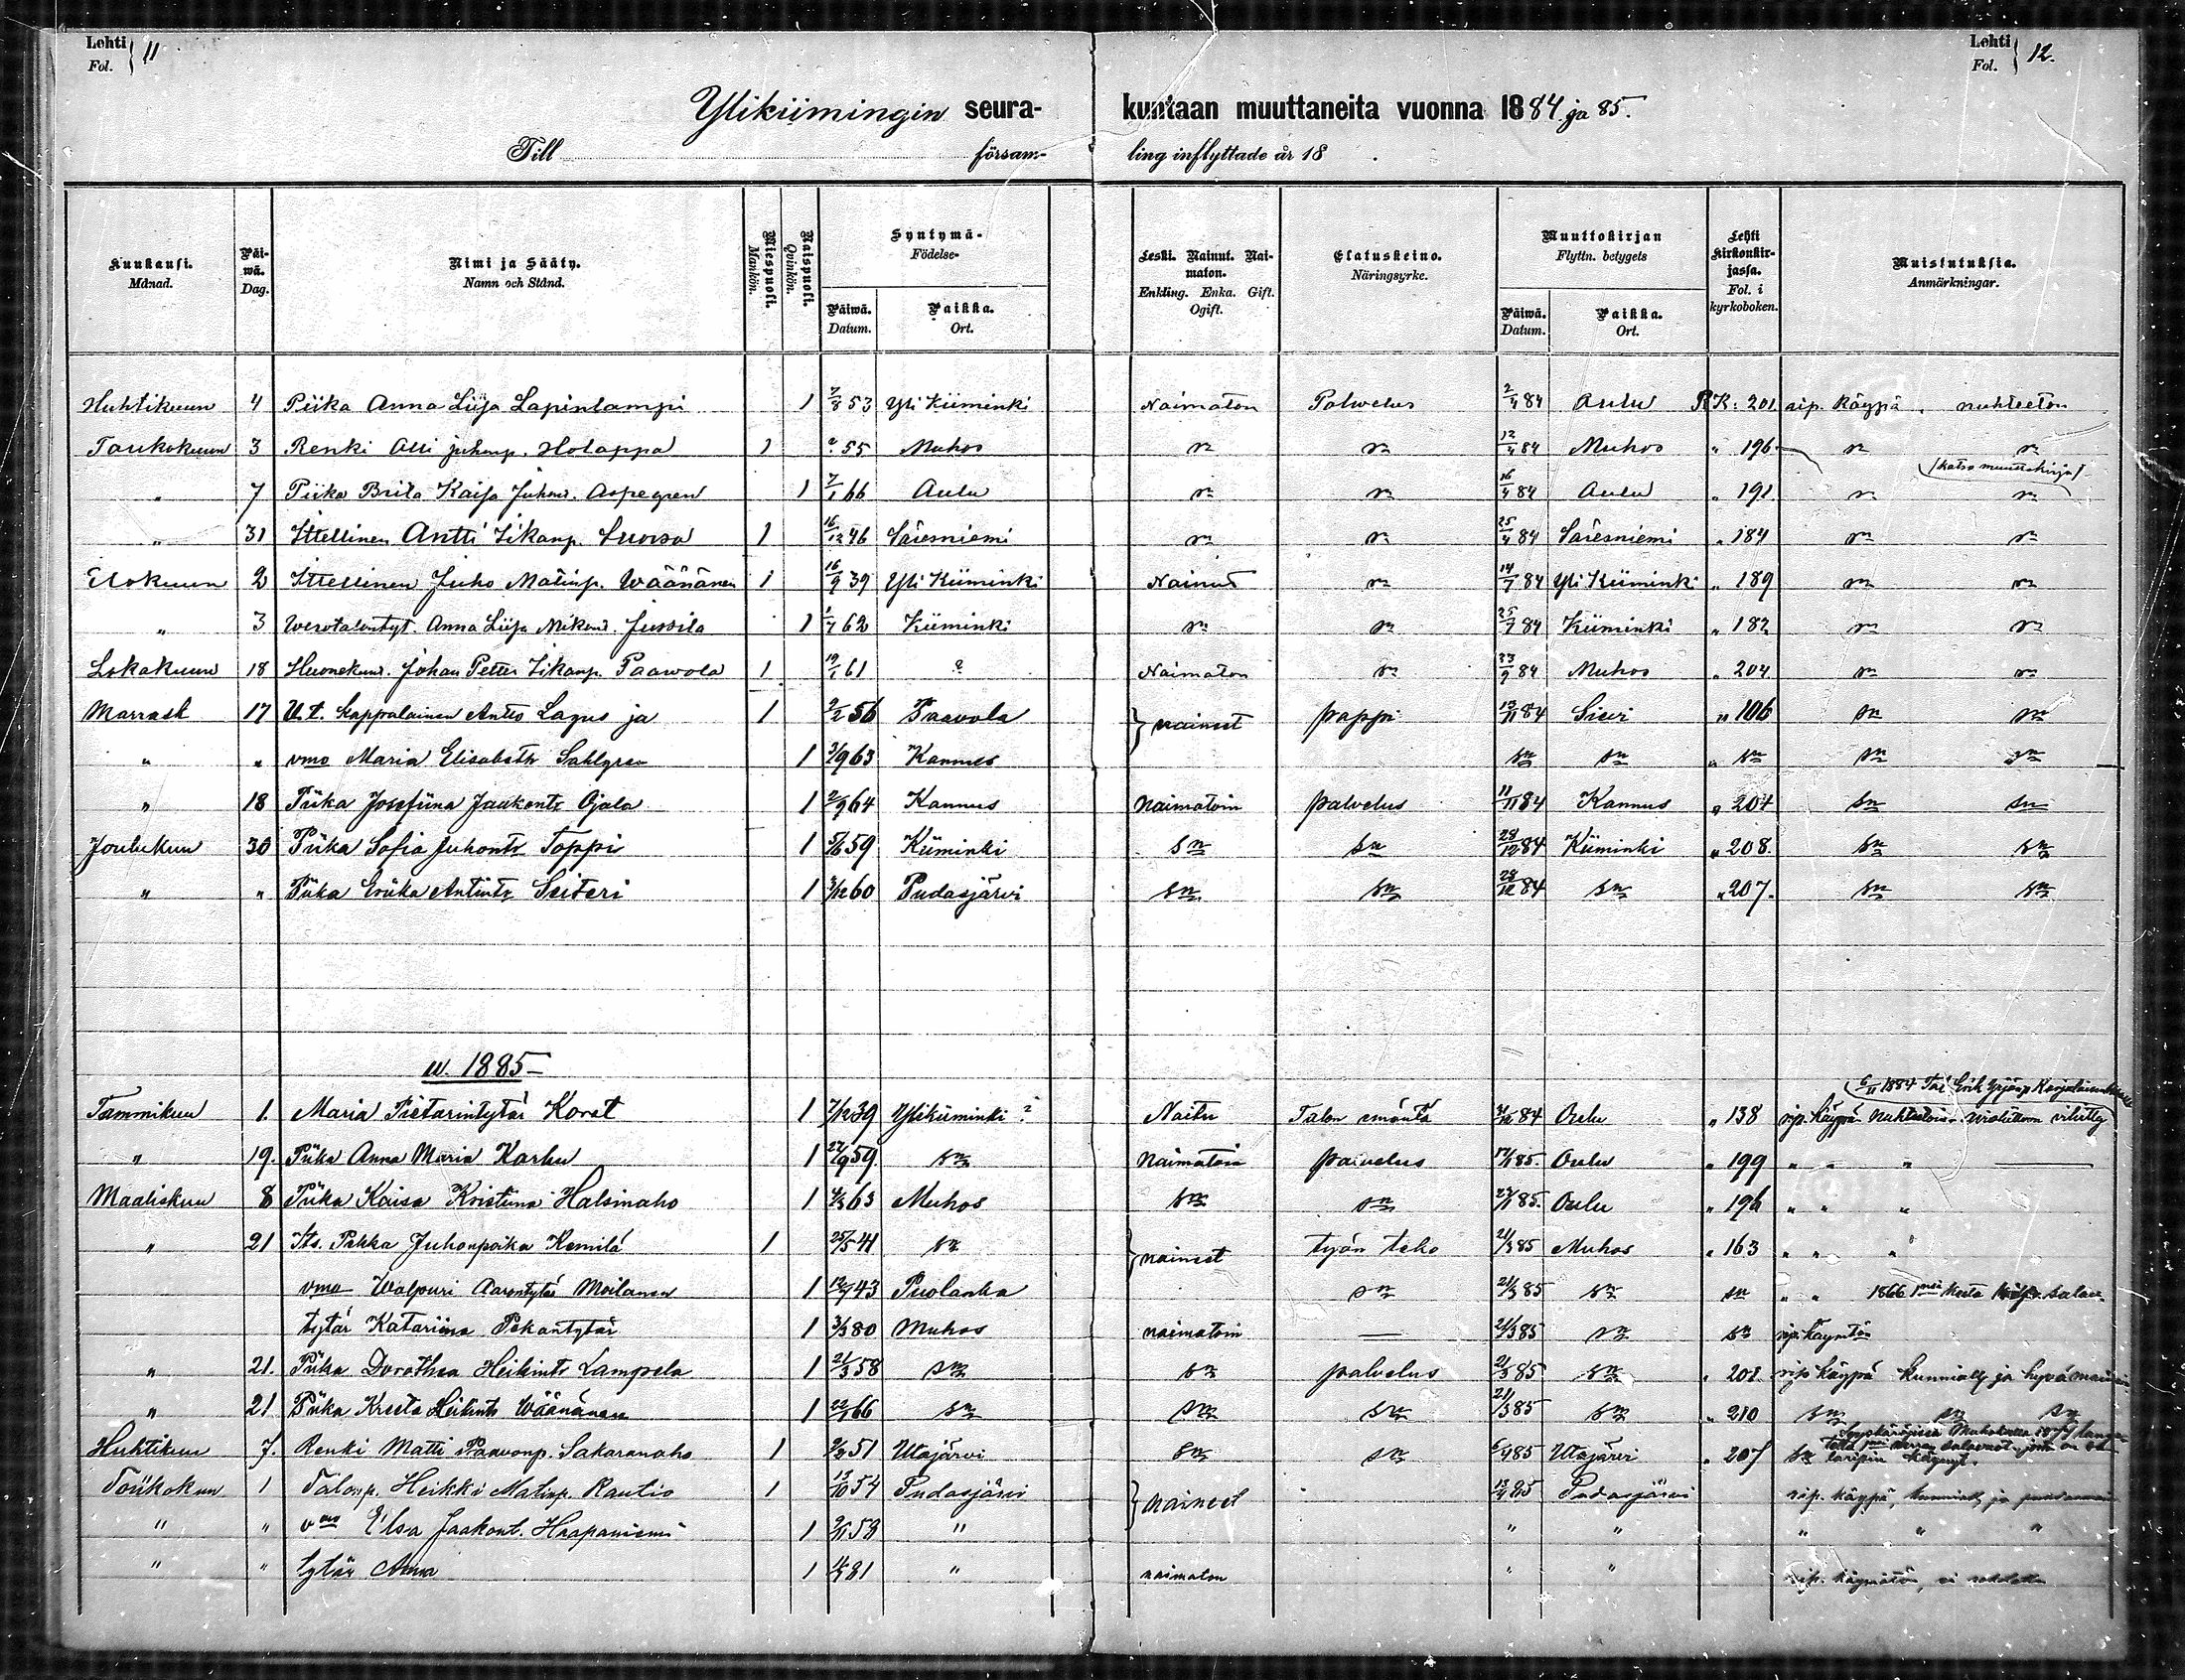 Lehti Fol. } 11
Lehti Fol. } 12.
Ylikiimingin seura- kuntaan muuttaneita vuonna 1884. ja 85.
Till församling inflyttade år 18 .
Kuukausi. Månad. Päiwä. Dag. Nimi ja Sääty. Namn och Stånd. Miespuoli. Mankön. Naispuoli. Qvinkön. Syntymä- Födelse- Päiwä. Datum. Paikka. Ort. Leski. Nainut. Naimaton. Enkling. Enka. Gift. Ogift. Elatuskeino. Näringsyrke. Muuttokirjan Flyttn. betygets Päiwä. Datum. Paikka. Ort. Lehti kirkonkirjassa. Fol. i kyrkoboken. Muistutuksia. Anmärkningar.
Huhtikuun 4 Piika Anna Liisa Lapinlampi 1 7/8 53 Yli Kiiminki Naimaton Palwelus 2/4 84 Oulu RK: 201 rip. käypä, nuhteeton
Toukokuun 3 Renki Olli juhonp. Holappa 1 ? 55 Muhos sn sn 12/4 84 Muhos " 196 sn sn
(katso muuttokirja)
" 7 Piika Brita Kaisa Juhont. Aspegren 1 7/1 66 Oulu sn sn 16/4 84 Oulu " 191 sn sn
" 31 Ittellinen Antti Iikanp. Luossa 1 16/12 46 Säresniemi sn sn 25/4 84 Säresniemi " 184 sn sn
Elokuun 2 Ittellinen Juho Matinp. Wäänänen 1 16/9 39 Yli Kiiminki Nainut sn 14/7 84 Yli Kiiminki " 189 sn sn
" 3 Werotalontyt. Anna Liisa Mikont. Jussila 1 1/7 62 Kiiminki sn sn 25/7 84 Kiiminki " 182 sn sn
Lokakuun 18 Huonekund. Johan Petter Iikanp. Paawola 1 19/1 61 ? Naimaton sn 23/9 84 Muhos " 204 sn sn
Marrask 17 V.t. kappalainen Anton Lagus ja 1 2/2 56 Paavola } naineet pappi 12/11 84 Sievi " 106 sn sn
" " vmo Maria Elisabeth Sahlgren 1 3/9 63 Kannus sn sn " sn sn sn
" 18 Piika Josefiina Jaakontr Ojala 1 2/9 64 Kannus naimatoin palvelus 11/11 84 Kannus " 204 sn sn
Joulukuu 30 Piika Sofia Juhontr Toppi 1 5/6 59 Kiiminki sn sn 28/12 84 Kiiminki " 208. sn sn
" " Piika Eriika Antintr Seiteri 1 3/12 60 Pudasjärvi sn sn 28/12 84 sn " 207. sn sn
w. 1885
6/11 1884 Erik Yrjänp Karjalaisen
Tammikuu 1. Maria Pietarintytär Korat 1 7/12 39 Ylikiiminki ? Naitu Talon emäntä 31/12 84 Oulu " 138 rip. käypä nuhtetoin vihitty
" 19. Piika Anna Maria Karhu 1 27/9 59 sn naimatoin palvelus 17/1 85. Oulu " 199 " " "
Maaliskuu 8 Piika Kaisa Kristiina Halsinaho 1 4/3 63 Muhos sn sn 27/1 85. Oulu " 196 " " "
" 21 Its. Pekka Juhonpoika Kemilä 1 25/5 41 sn } naineet työn teko 21/3 85 Muhos " 163 " " "
vmo Walpuri Aarontytär Moilanen 1 12/9 43 Puolanka sn 21/3 85 sn sn " " 1866 1nen kerta salav.
tytär Katariina Pekantytär 1 3/3 80 Muhos naimatoin — 21/3 85 sn sn rip. käymtön
" 21. Piika Dorothea Heikintr Lampela 1 21/3 58 sn sn palvelus 21/3 85 sn " 201 rip käypä kunniall ja hyvämain
" 21 Piika Kreeta Heikintr Wäänänen 1 22/1 66 sn sn sn 21/3 85 sn " 210 sn sn sn
Syyskäräjissä Muhoksella 1879
Huhtikuu 7. Renki Matti Paavonp. Sakaranaho 1 9/2 51 Utajärvi sn sn 6/4 85 Utajärvi " 207 sn
Toukokuu 1 Talonp. Heikki Matinp. Rautio 1 13/10 54 Pudasjärvi } naineet 13/4 85 Pudasjärvi rip. käypä, kunniall. ja
" " vmo Elsa Jaakont. Haapaniemi 1 9/11 58 " " " " " "
" " tytär Anna 1 81 " naimaton " " rip. käymätön, ei